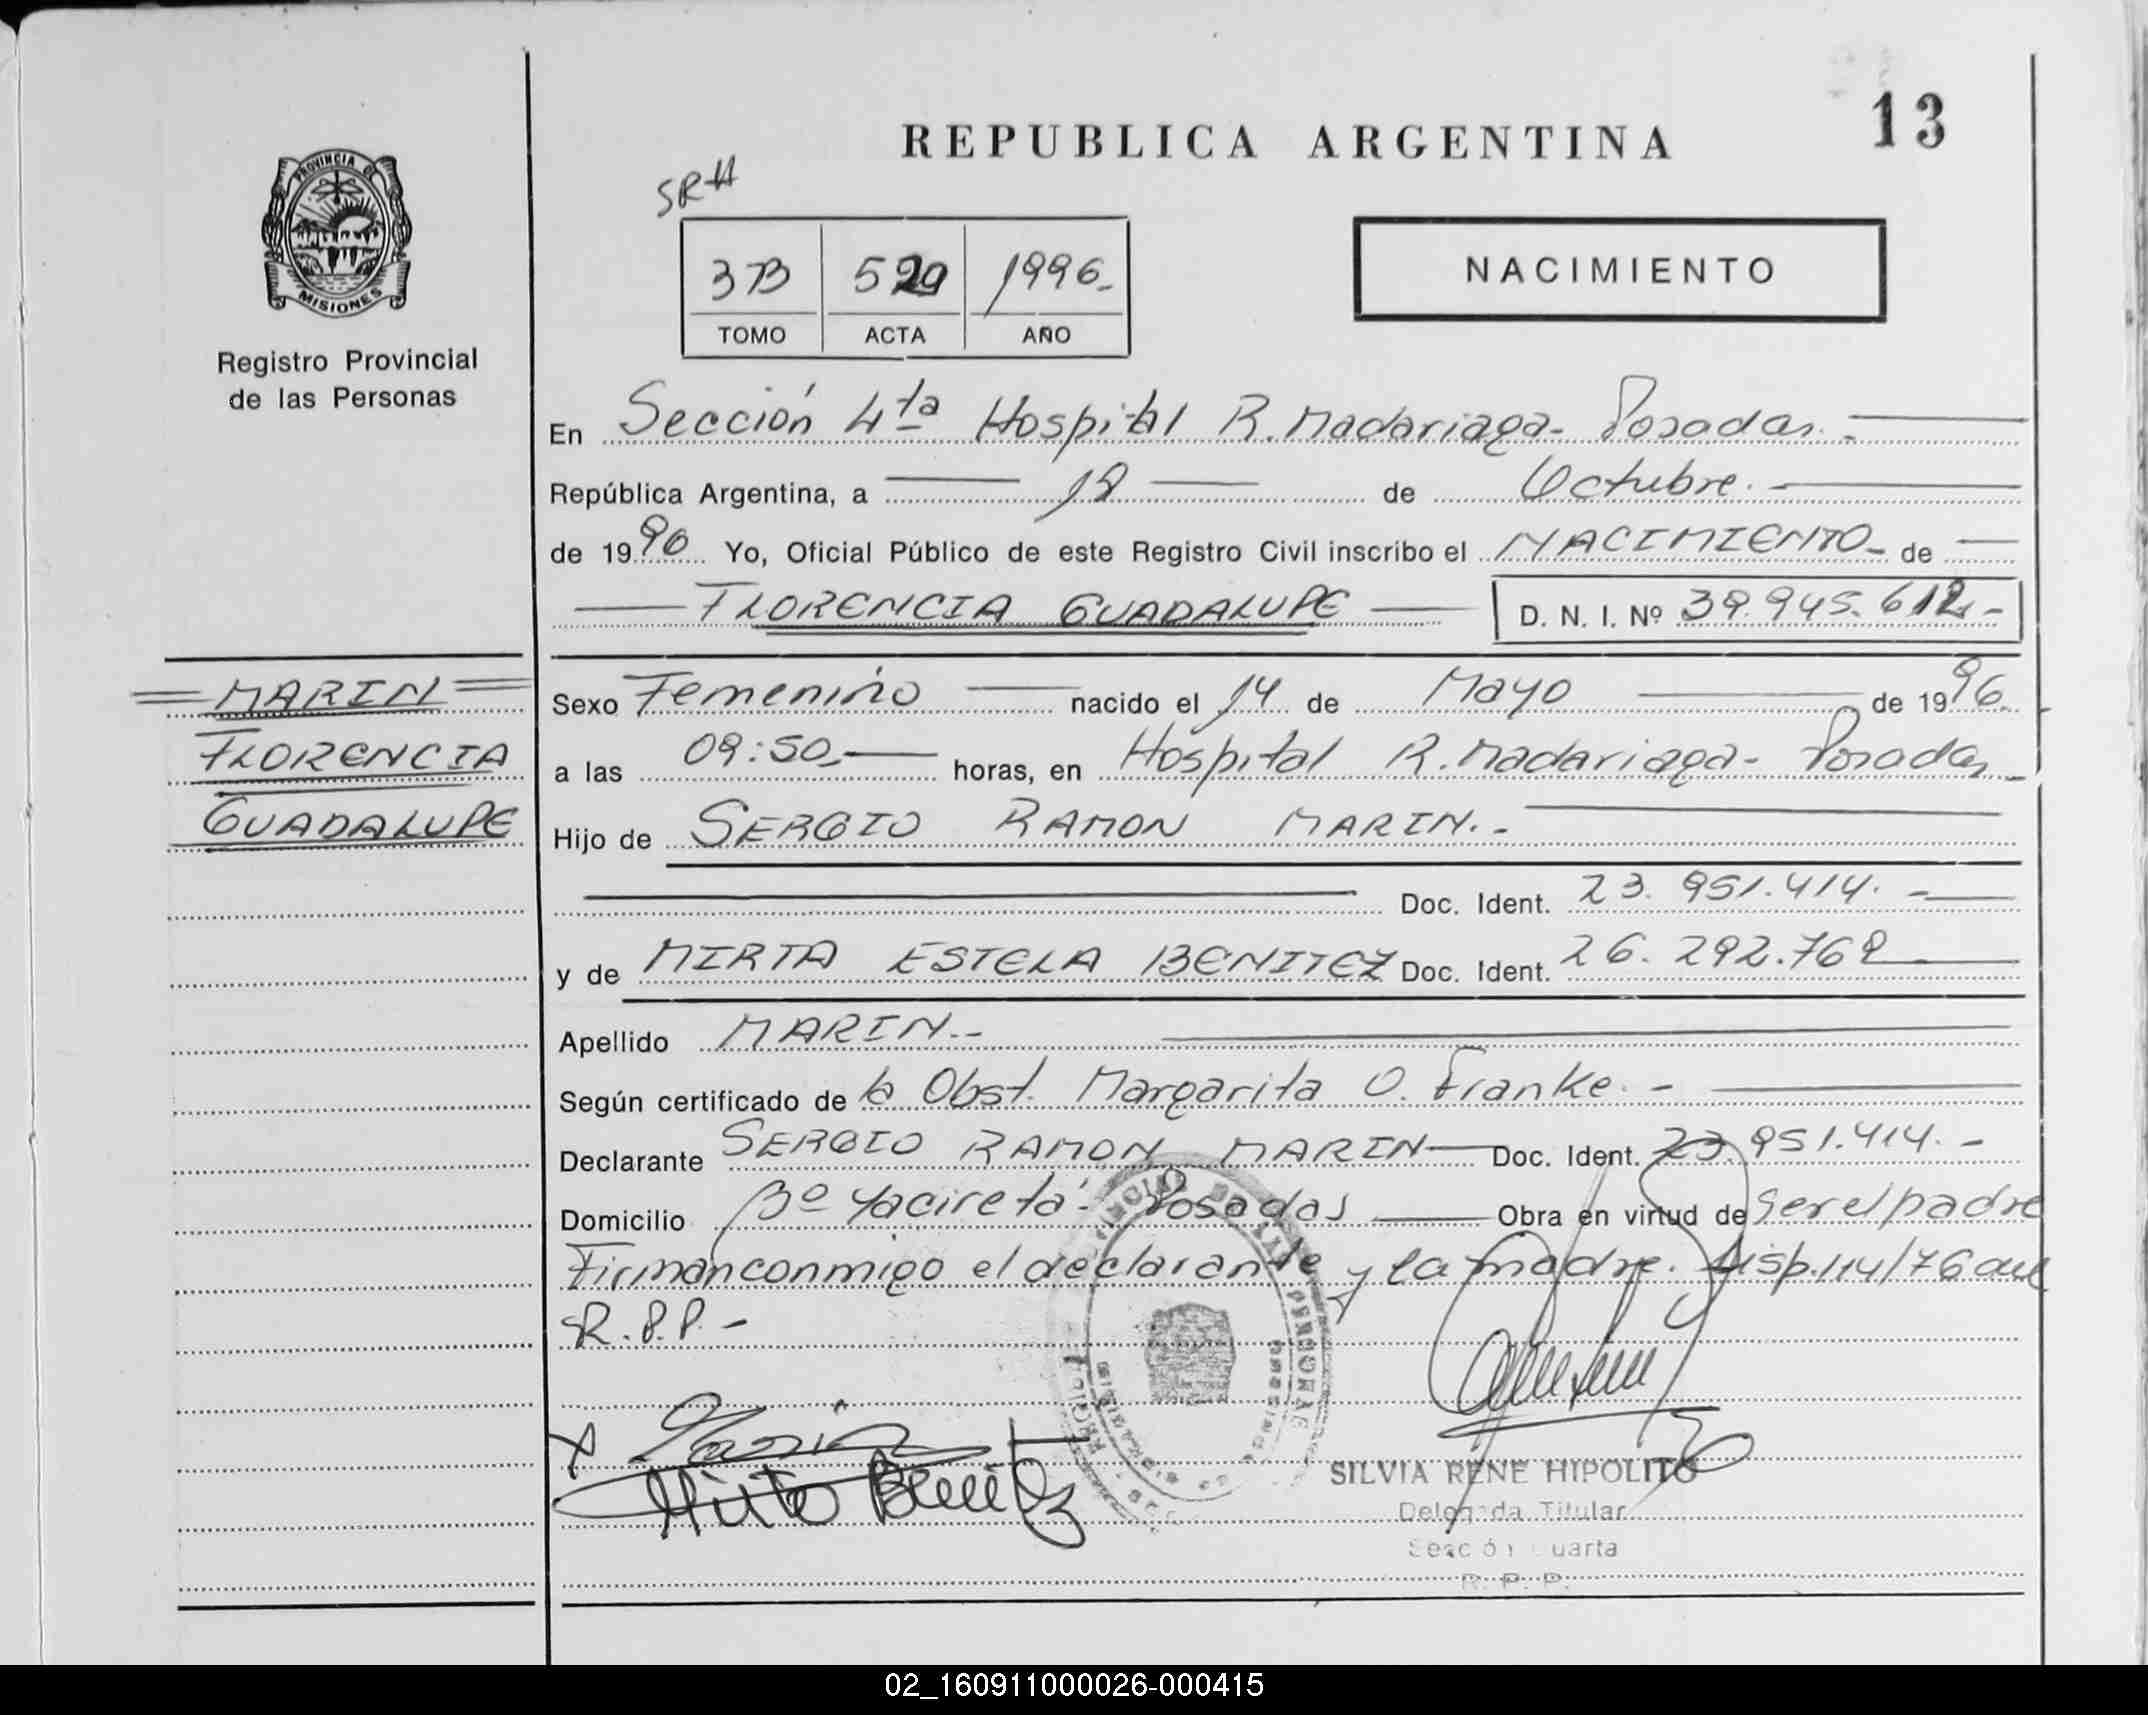 13
REPUBLICA ARGENTINA
PROVINCIA DE
MISIONES
Registro Provincial
de las Personas
SRH
3B 1996.-
TOMO ACTA AÑO
NACIMIENTO
En Sección 4ta Hospital R. Madariaga- Posadas.-
República Argentina, a de Octubre.-
de 1996 Yo, Oficial Público de este Registro Civil inscribo el NACIMIENTO- de
FLORENCIA GUADALUPE
D. N. I. Nº
MARIN
FLORENCIA
GUADALUPE
Sexo Femenino nacido el 14 de Mayo de 1996.
a las 09:50.- horas, en Hospital R. Madariaga- Posadas-
Hijo de SERGIO RAMON MARIN.-
Doc. Ident. 23.951.414.-
y de MIRTA ESTELA BENITEZ Doc. Ident.
Apellido MARIN.-
Según certificado de la Obst. Margarita O. Franke.-
Declarante SERGIO RAMON MARIN Doc. Ident. 23.951.414.-
Domicilio Bº Yacireta- Posadas Obra en virtud de ser el padre
Firman conmigo el declarante y la madre. Disp. 114/76 del
R.P.P.-
X Marin
Mirta Benitez
SILVIA RENE HIPOLITO
Delegada Titular
Sección Cuarta
R. P. P.
02_160911000026-000415